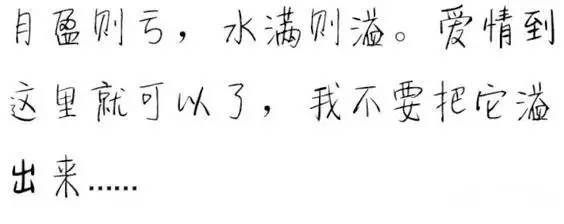 月盈则亏，水满则溢。爱情到
这里就可以了，我不要把它溢
出来……